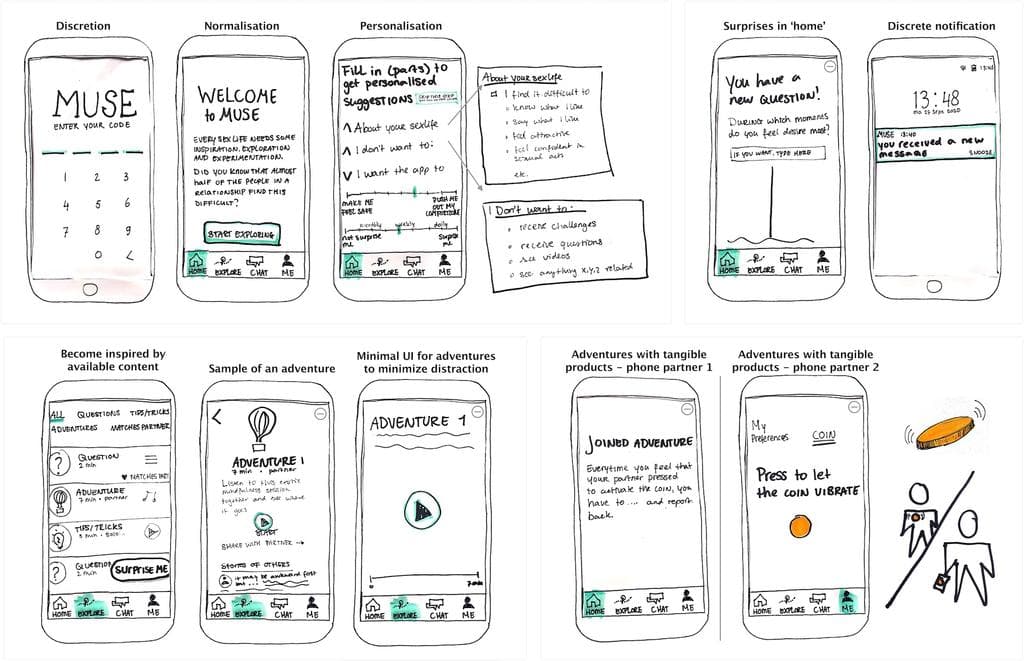 Discretion
MUSE
ENTER YOUR CODE
1 2 3
4 5 6
7 8 9
0 <
Normalisation
WELCOME
to MUSE
EVERY SEX LIFE NEEDS SOME
INSPIRATION, EXPLORATION
AND EXPERIMENTATION.
DID YOU KNOW THAT ALMOST
HALF OF THE PEOPLE IN A
RELATIONSHIP FIND THIS
DIFFICULT?
START EXPLORING
HOME EXPLORE CHAT ME
Personalisation
Fill in (parts) to
get personalised
suggestions
About your sexlife
I don't want to:
I want the app to
MAKE ME
FEEL SAFE
PUSH ME
OUT MY
COMFORTZONE
monthly weekly daily
not surprise
me
Surprise
me
HOME EXPLORE CHAT ME
About your sexlife
I find it difficult to
know what I like
say what I like
feel attractive
feel confident in
sexual acts
etc.
I Don't want to:
receive challenges
receive questions
see videos
see anything x,y,z related
Surprises in ‘home’
You have a
new QUESTION!
DURING which moments
do you feel desire most?
IF YOU WANT, TYPE HERE
HOME EXPLORE CHAT ME
Discrete notification
13:48
13:48
MUSE 13:40
you received a new
message
SNOOZE
Become inspired by
available content
ALL QUESTIONS TIPS/TRICKS
ADVENTURES MATCHES PARTNER
? QUESTION
2 min
ADVENTURE
7 min • partner
TIPS/TRICKS
? QUESTION
2 min
SURPRISE ME
HOME EXPLORE CHAT ME
Sample of an adventure
<
ADVENTURE 1
7 min • partner
Listen to this erotic
mindfulness session
together and see where
it goes
START
SHARE WITH PARTNER →
STORIES OF OTHERS
it may be awkward first
but ...
HOME EXPLORE CHAT ME
Minimal UI for adventures
to minimize distraction
ADVENTURE 1
7 min
HOME EXPLORE CHAT ME
Adventures with tangible
products - phone partner 1
JOINED ADVENTURE
Everytime you feel that
your partner pressed
to activate the coin, you
have to .... and report
back.
HOME EXPLORE CHAT ME
Adventures with tangible
products - phone partner 2
My
Preferences
COIN
Press to let
the COIN VIBRATE
HOME EXPLORE CHAT ME